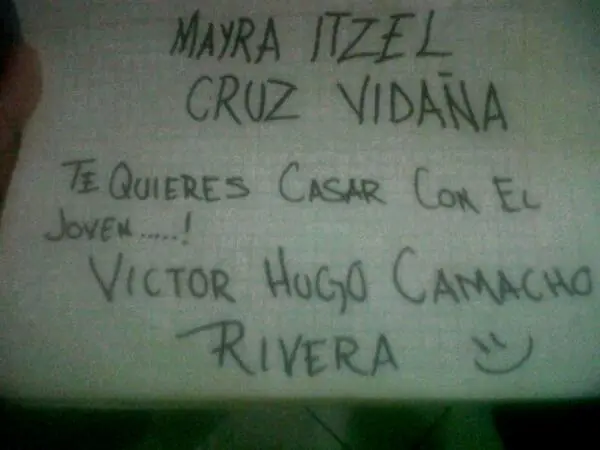 MAYRA ITZEL
CRUZ VIDAÑA
TE QUIERES CASAR CON EL
JOVEN.....!
VICTOR HUGO CAMACHO
RIVERA